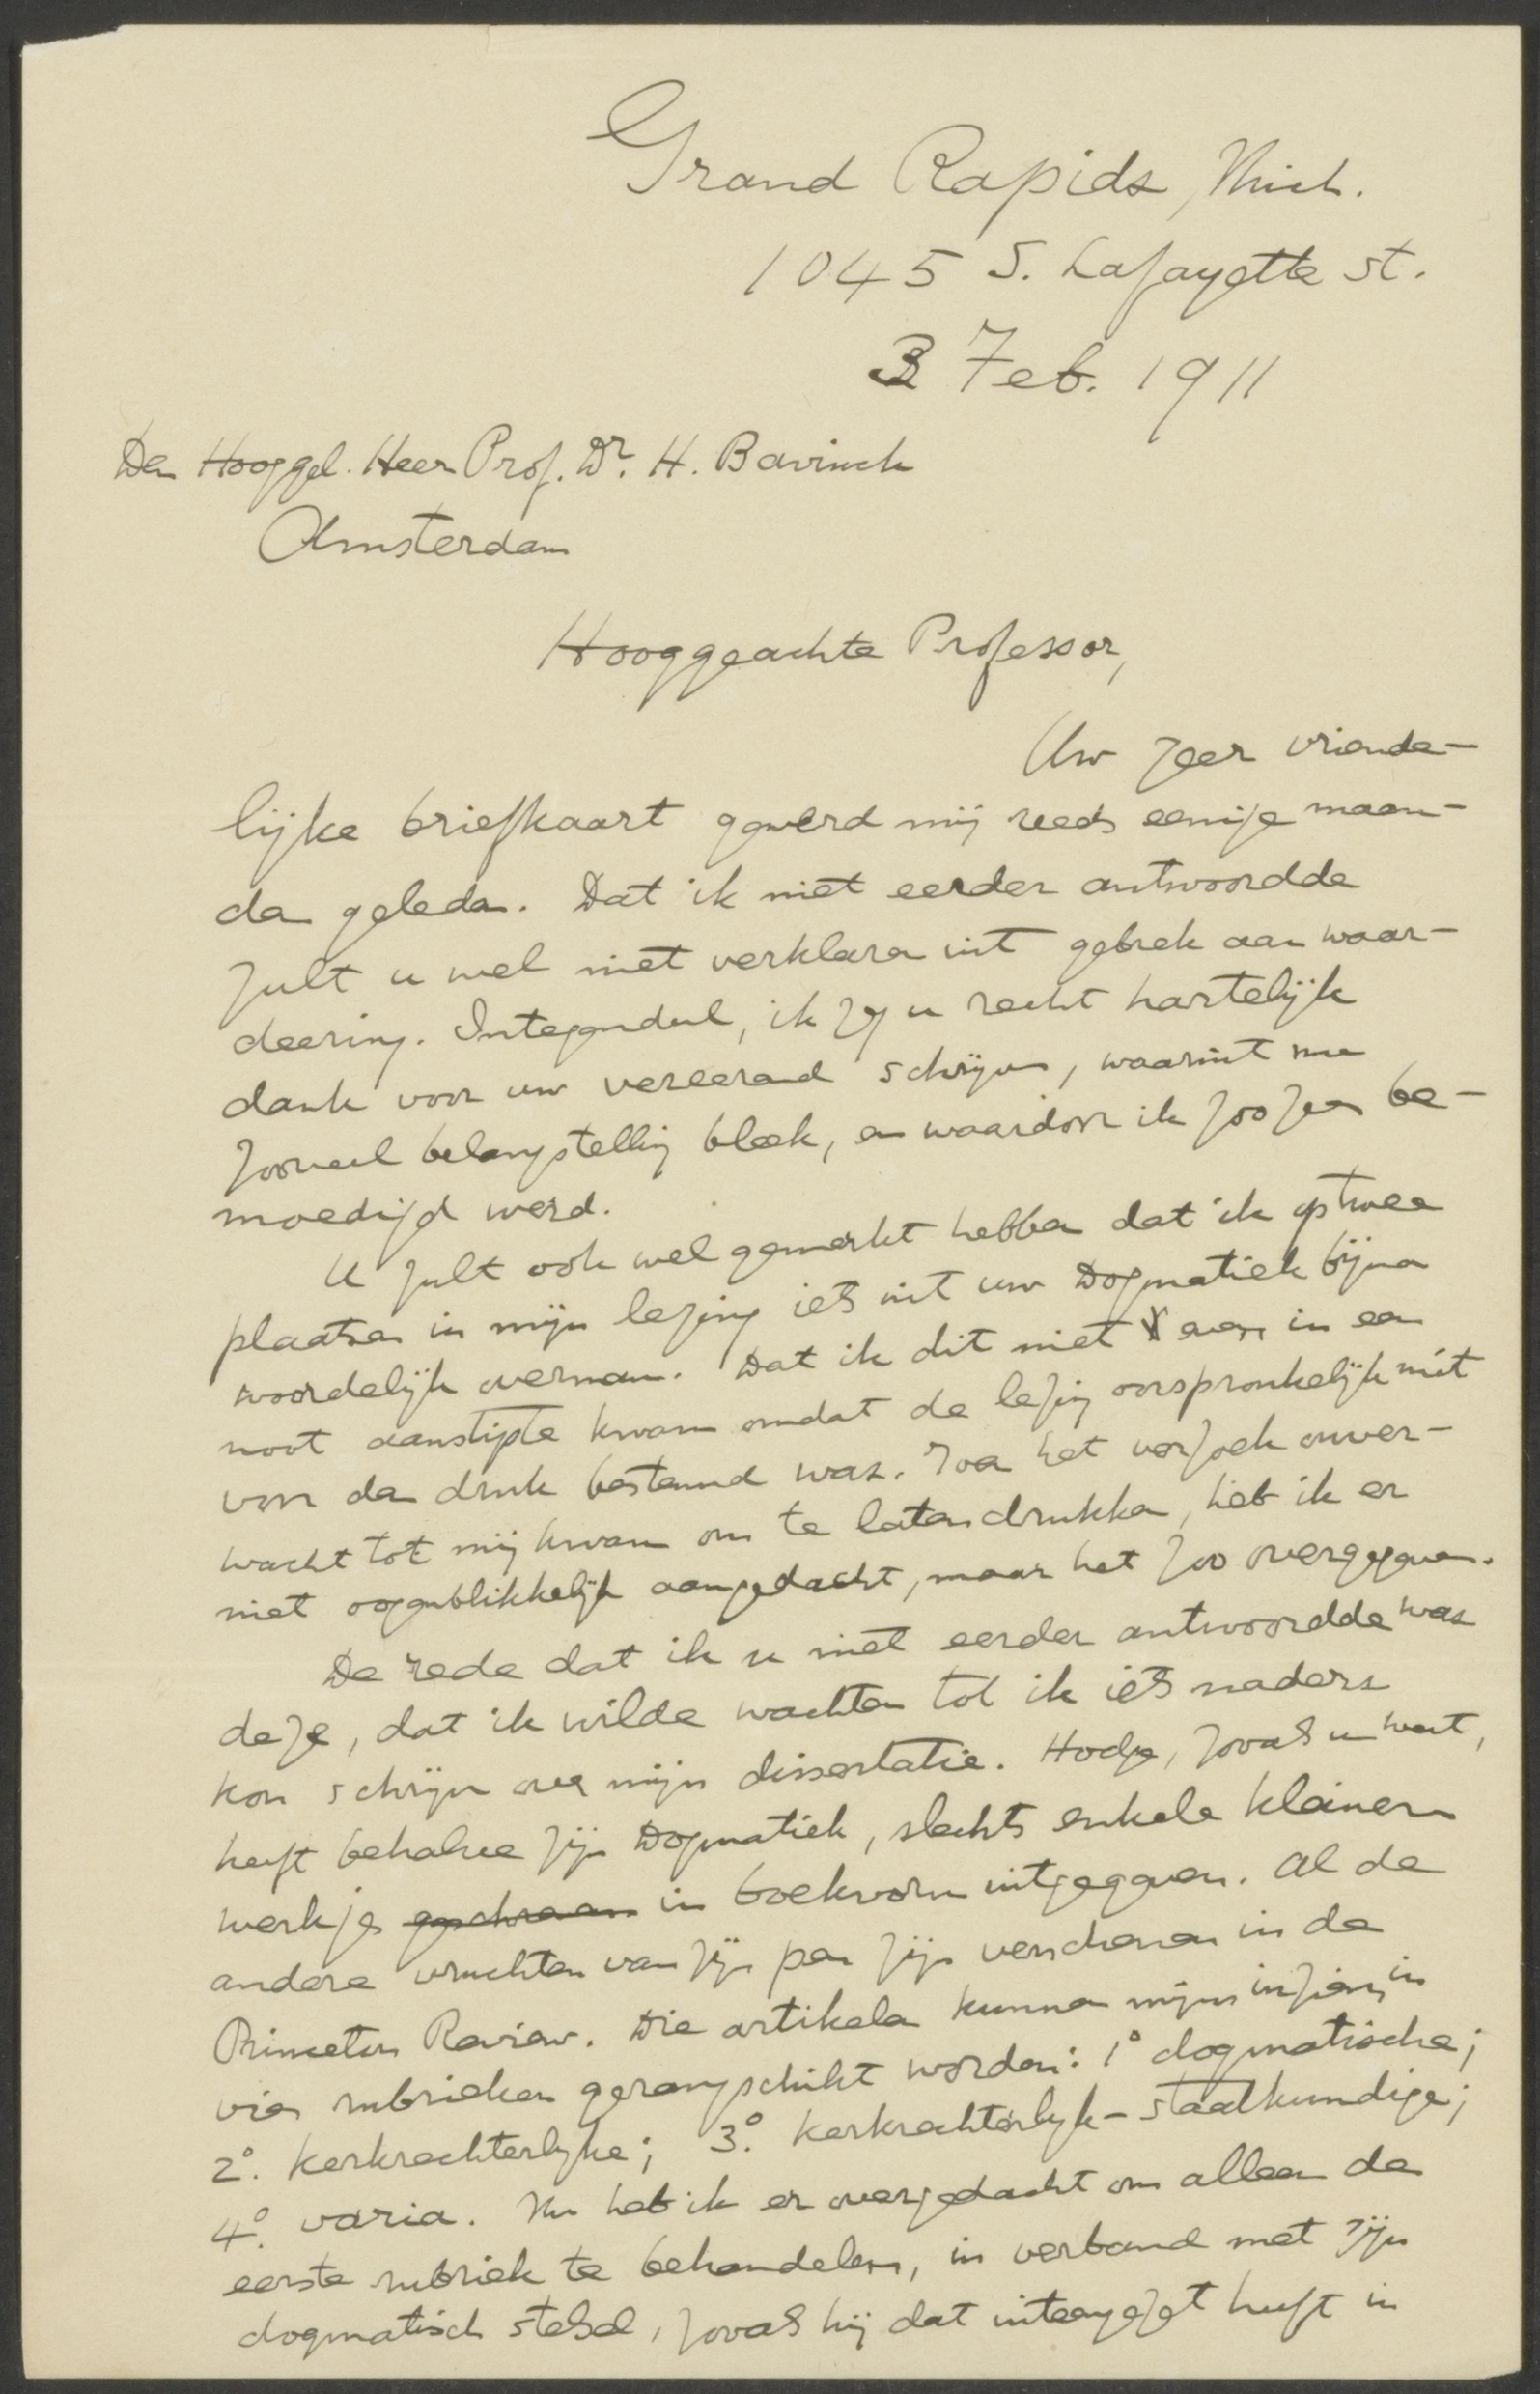 Grand Rapids, Mich.
1045 S. Lafayette St.
3 Feb. 1911
Den Hooggel. Heer Prof. Dr. H. Bavinck
Amsterdam
Hooggeachte Professor,
Uw zeer vriende-
lijke briefkaart gewerd mij reeds eenige maan-
den geleden. Dat ik niet eerder antwoordde
zult u wel niet verklaren uit gebrek aan waar-
deering. Integendeel, ik zeg u recht hartelijk
dank voor uw vereerend schrijven, waaruit me
zooveel belangstelling bleek, en waardoor ik zoo zeer be-
moedigd werd.
U zult ook wel gemerkt hebben dat ik op twee
plaatsen in mijn lezing iets uit uw Dogmatiek bijna
woordelijk overnam. Dat ik dit niet even in een
noot aanstipte kwam omdat de lezing oorspronkelijk niet
voor den druk bestemd was. Toen het verzoek onver-
wacht tot mij kwam om te laten drukken, heb ik er
niet oogenblikkelijk aangedacht, maar het zoo overgegeven.
De rede dat ik u niet eerder antwoordde was
deze, dat ik wilde wachten tot ik iets naders
kon schrijven over mijn dissertatie. Hodge, zooals u weet,
heeft behalve zijn Dogmatiek, slechts enkele kleinere
werkjes geschreven in boekvorm uitgegeven. Al de
andere vruchten van zijn pen zijn verschenen in de
Princeton Review. Die artikelen kunnen mijns inziens in
vier rubrieken gerangschikt worden: 1° dogmatische;
2°. kerkrechterlijke; 3°. kerkrechterlijk-staatkundige;
4°. varia. Nu heb ik er overgedacht om alleen de
eerste rubriek te behandelen, in verband met zijn
dogmatisch stelsel, zooals hij dat uiteengezet heeft in